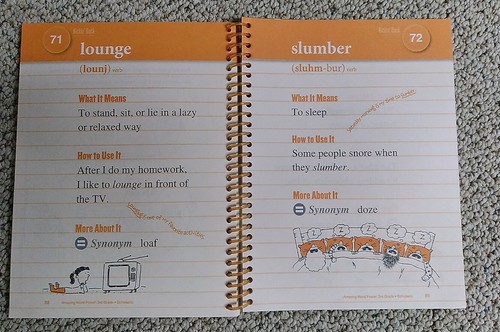 71
lounge
(lounj) verb
What It Means
To stand, sit, or lie in a lazy
or relaxed way
How to Use It
After I do my homework,
I like to lounge in front of
the TV.
More About It
= Synonym loaf
72
slumber
(sluhm-bur) verb
What It Means
To sleep
How to Use It
Some people snore when
they slumber.
More About It
= Synonym doze